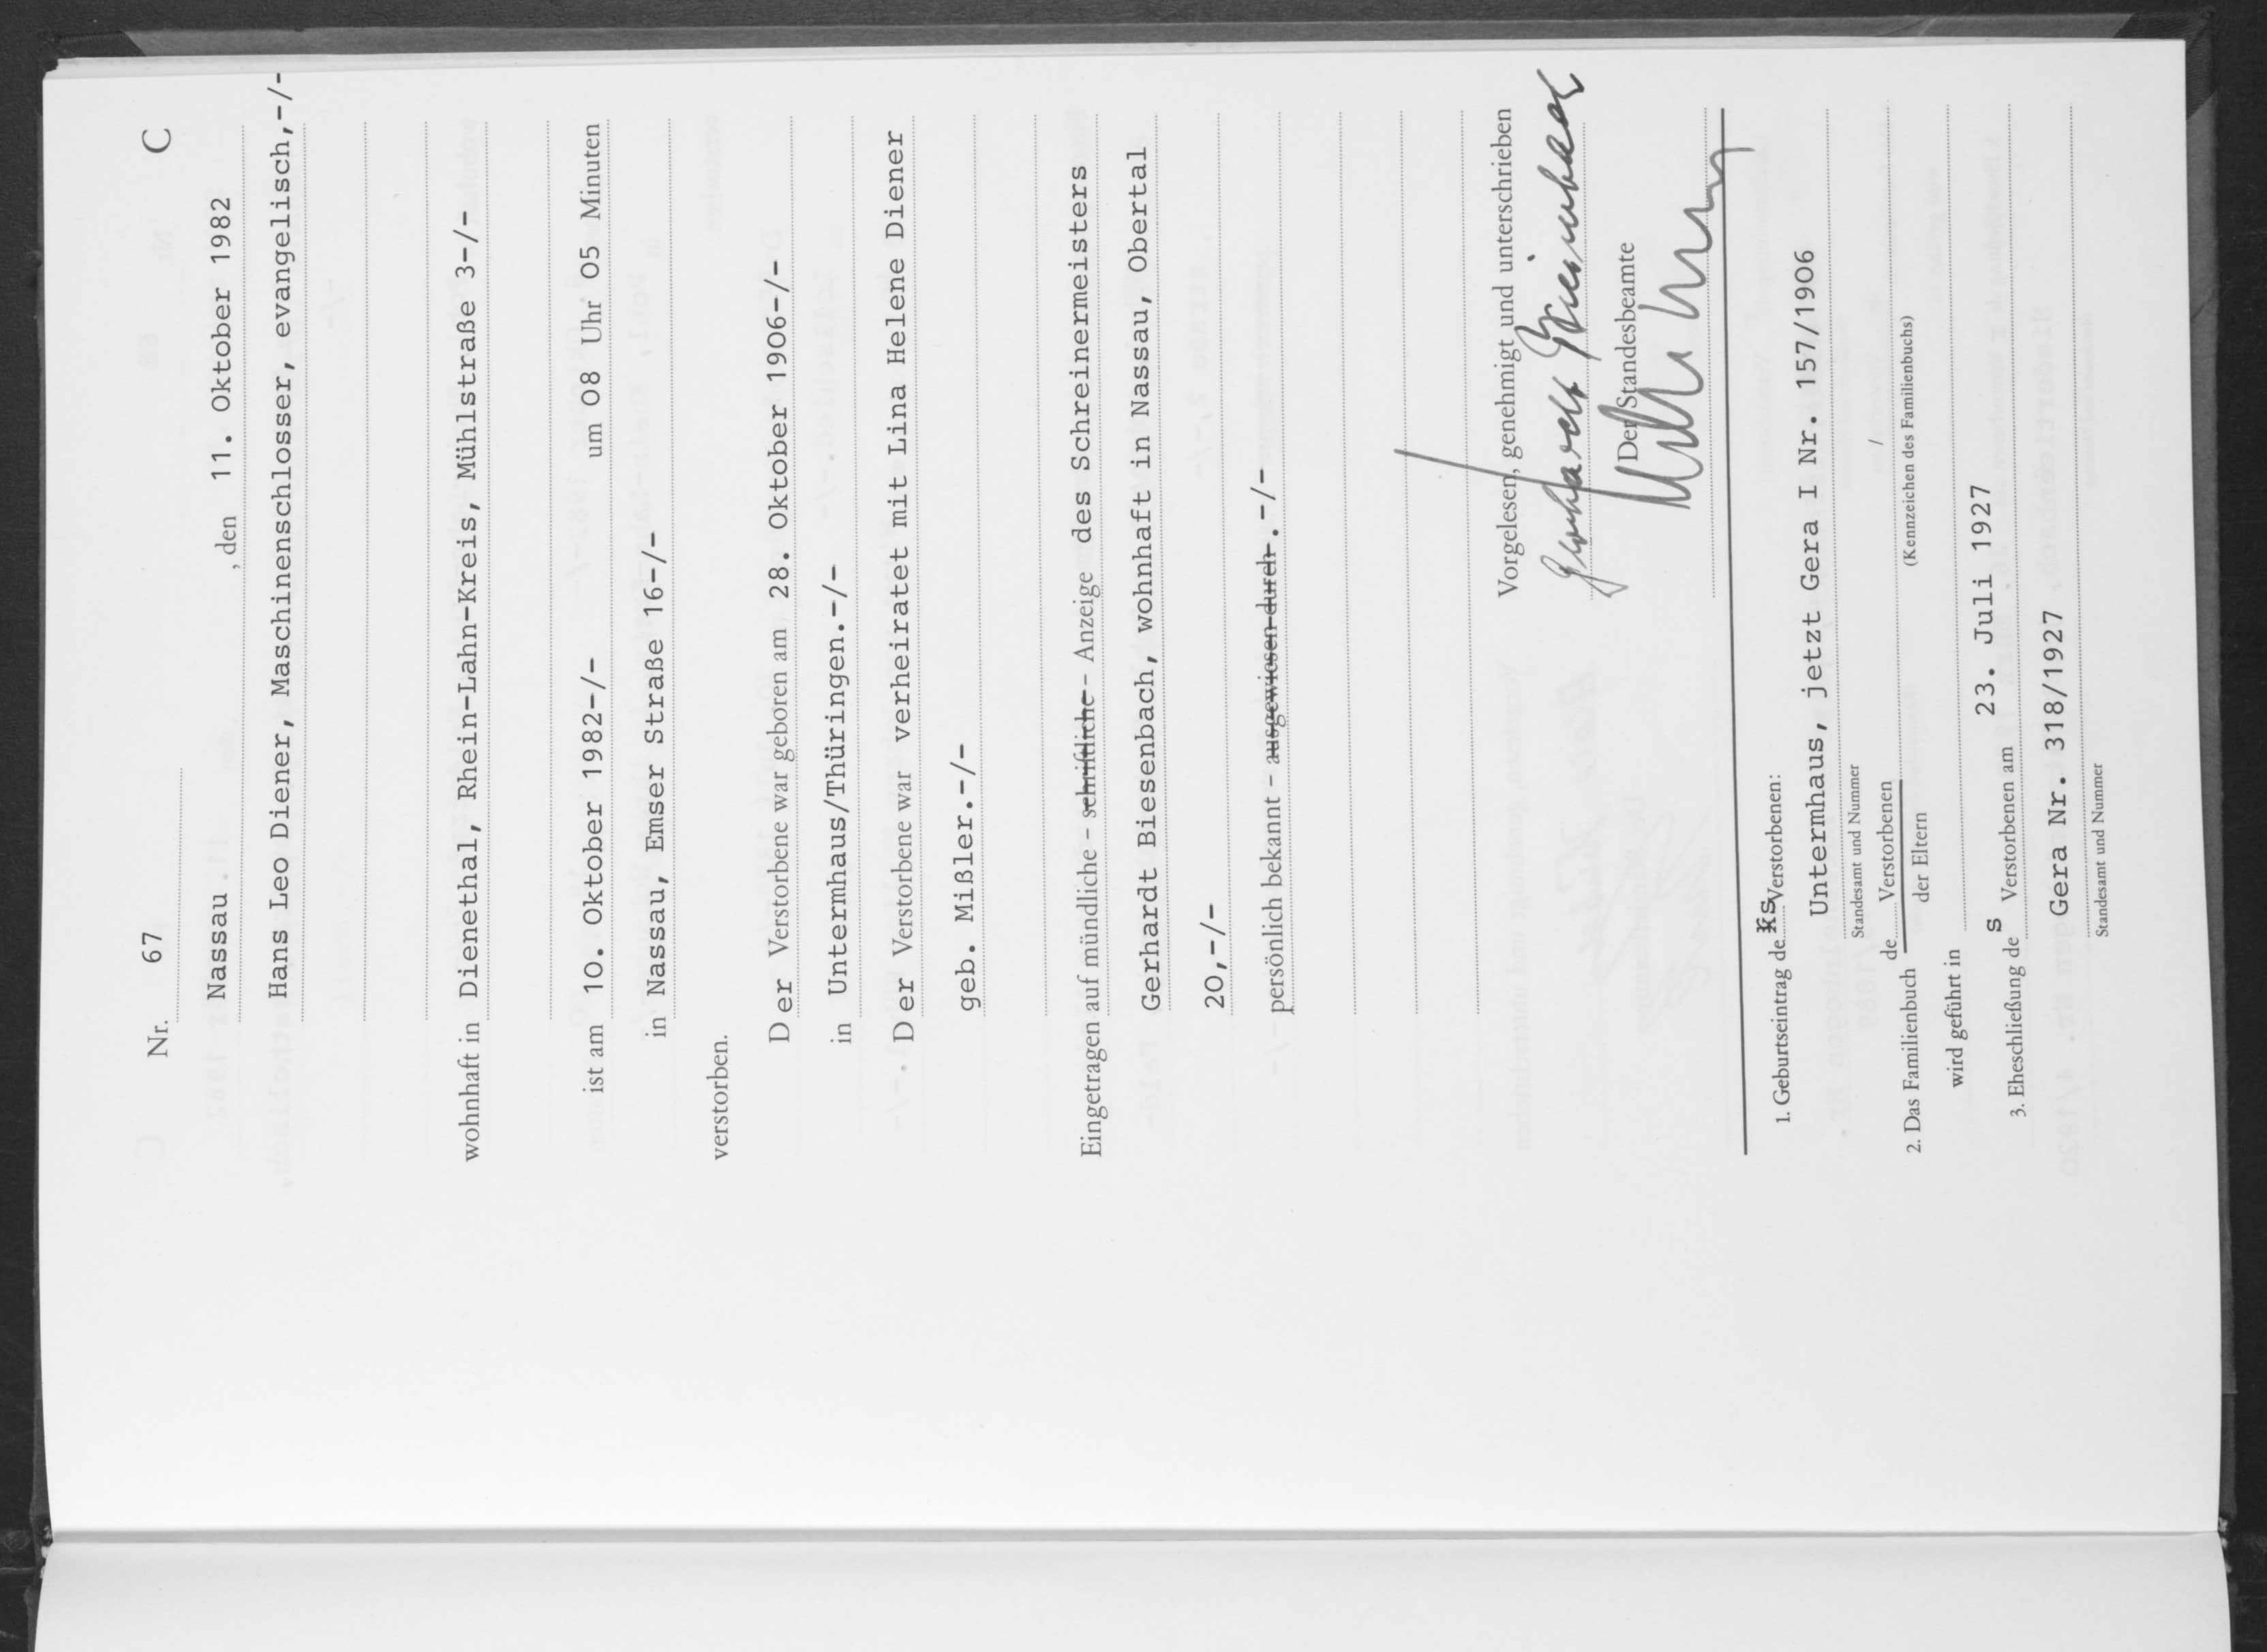 Nr. 67 C
Nassau, den 11. Oktober 1982
Hans Leo Diener, Maschinenschlosser, evangelisch,-/-
wohnhaft in Dienethal, Rhein-Lahn-Kreis, Mühlstraße 3-/-
ist am 10. Oktober 1982-/- um 08 Uhr 05 Minuten
in Nassau, Emser Straße 16-/-
verstorben.
Der Verstorbene war geboren am 28. Oktober 1906-/-
in Untermhaus/Thüringen.-/-
Der Verstorbene war verheiratet mit Lina Helene Diener
geb. Mißler.-/-
Eingetragen auf mündliche - schriftliche - Anzeige des Schreinermeisters
Gerhardt Biesenbach, wohnhaft in Nassau, Obertal
20,-/-
persönlich bekannt - ausgewiesen durch .-/-
Vorgelesen, genehmigt und unterschrieben
Gerhardt Biesenbach
Der Standesbeamte
1. Geburtseintrag des Verstorbenen:
Untermhaus, jetzt Gera I Nr. 157/1906
Standesamt und Nummer
2. Das Familienbuch de Verstorbenen /
der Eltern (Kennzeichen des Familienbuchs)
wird geführt in
3. Eheschließung des Verstorbenen am 23. Juli 1927
Gera Nr. 318/1927
Standesamt und Nummer